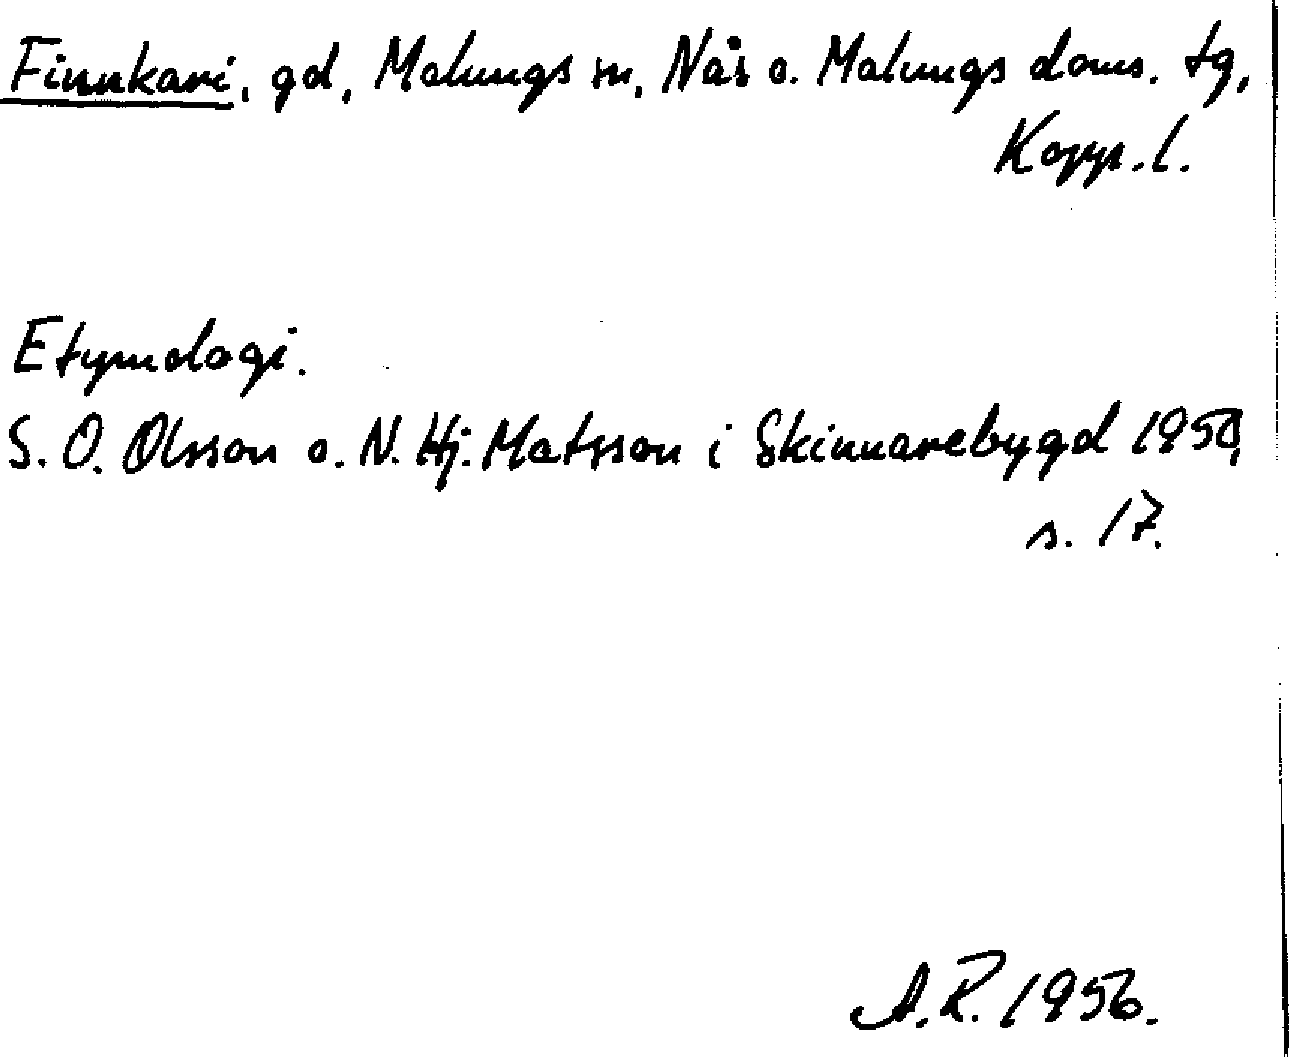 Finnkari, gd, Malungs sn, Nås o. Malungs doms. tg,
Kopp. l.
Etymologi.
S. O. Olsson o. N. Hj. Matsson i Skinnarebygd 1950,
s. 17.
A.R. 1956.